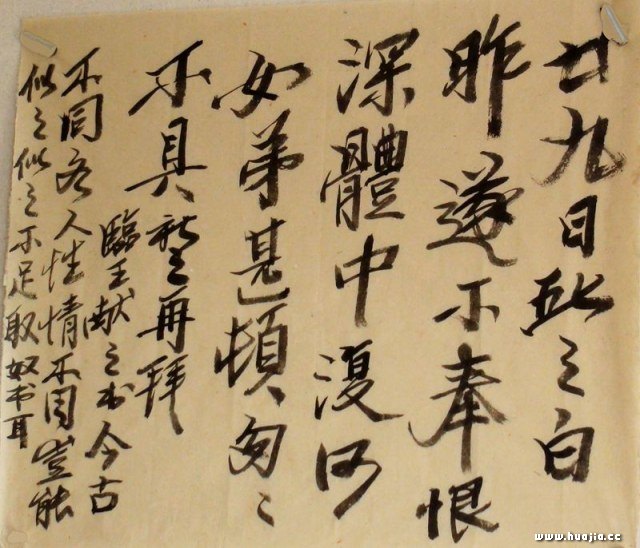 廿九日献之白
昨遂不奉恨
深體中復何
如弟甚頓匆〻
不具献之再拜
臨王献之书今古
不同各人性情不同豈能
似之似之不足取奴书耳
www.huajia.cc